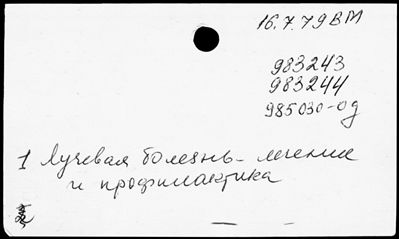 16.7.79 ВМ
983243
983244
985030-од
1 Лучевая болезнь - лечение
и профилактика